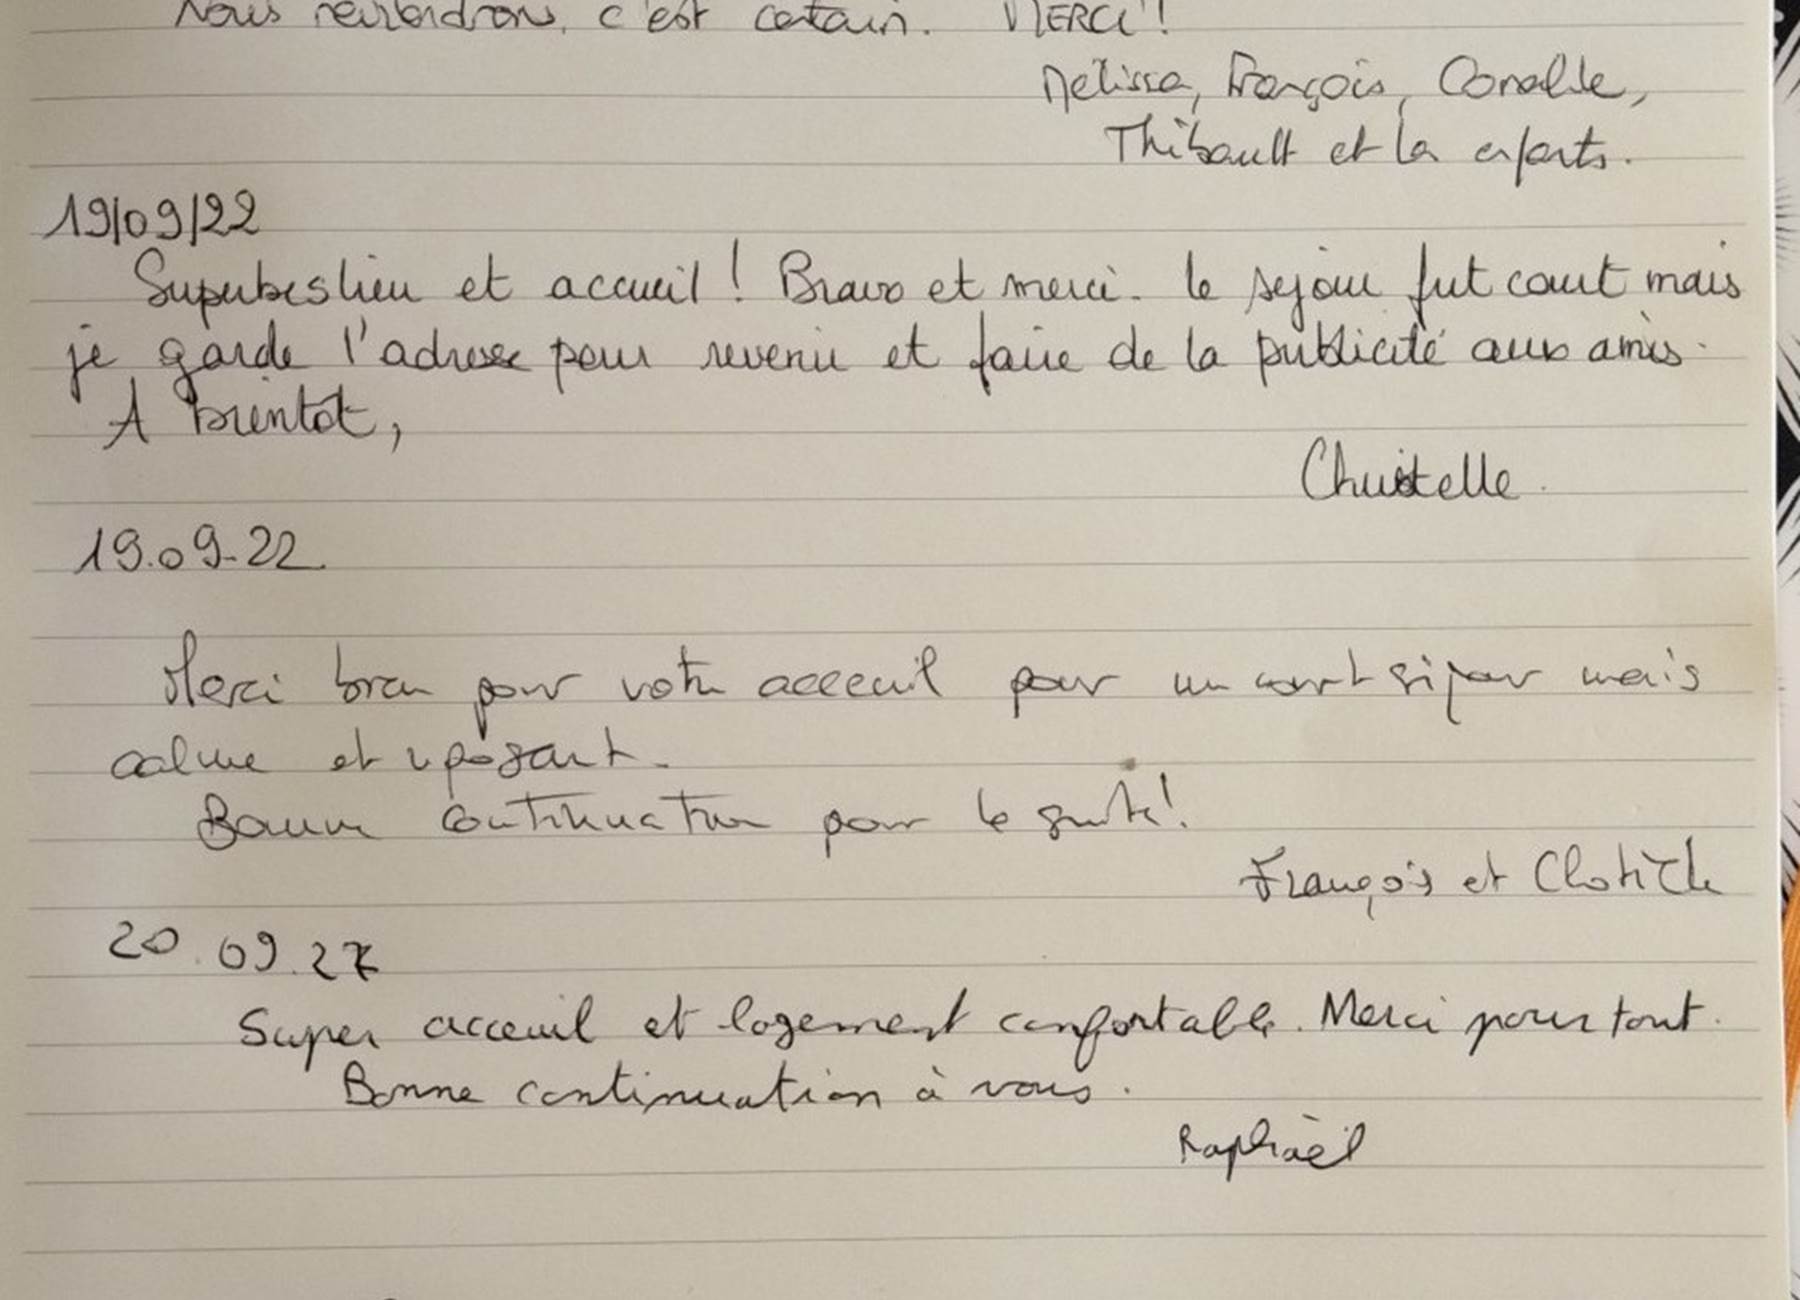 Nous reviendrons, c'est certain. MERCI!
Mélissa, François, Coralie,
Thibault et les enfants.
19/09/22
Superbes lieu et accueil ! Bravo et merci. Le séjour fut court mais
je garde l'adresse pour revenir et faire de la publicité aux amis.
A bientôt,
Christelle.
19.09.22
Merci bien pour votre acceuil pour un court séjour mais
calme et reposant.
Bonne continuation pour la suite!
François et Clotilde
20.09.22
Super acceuil et logement confortable. Merci pour tout.
Bonne continuation à vous.
Raphaël